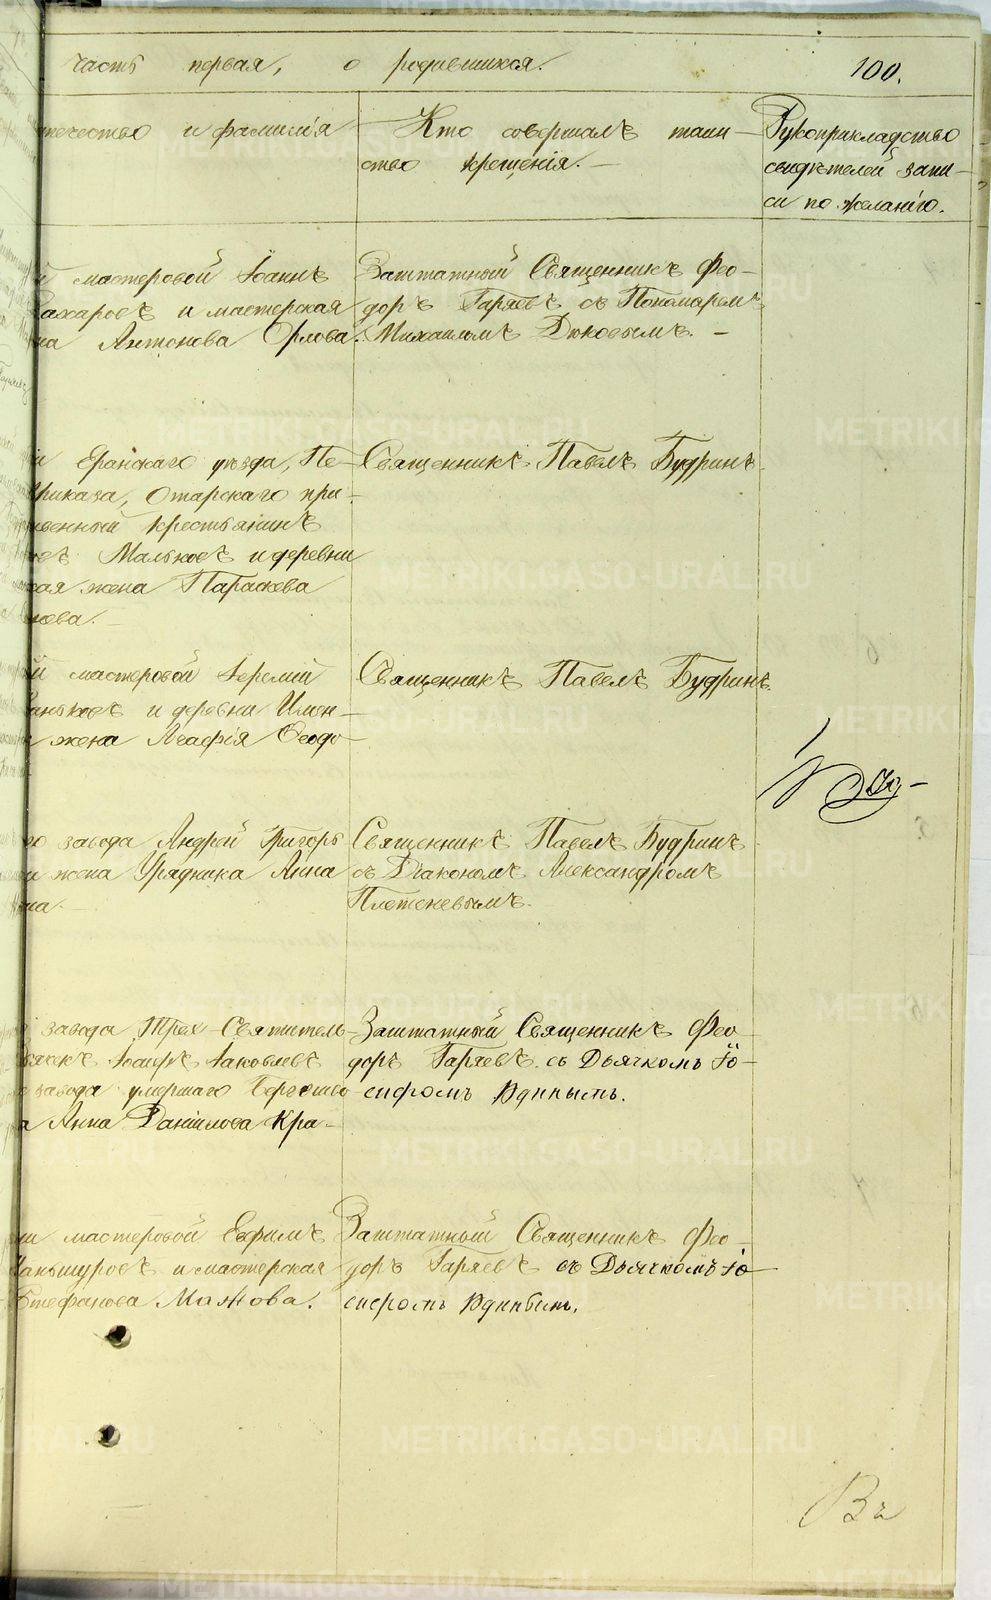 часть первая, о родившихся. 100.
отчество и фамилія
Кто совершалъ таин-
ство крещенія.
Рукоприкладство
свидѣтелей запи-
си по желанію.
й мастеровой Іоаннъ
Захаровъ и мастерская
на Антонова Орлова.
Заштатный Священникъ Фео-
доръ Гаряевъ съ Пономаремъ
Михаиломъ Дюковымъ.
Еранскаго уѣзда, Пе-
Приказа, Отарскаго при-
твенный крестьянинъ
въ Мальковъ и деревни
кая жена Параскева
нова.
Священникъ Павелъ Будринъ.
й мастеровой Іеремій
Ваньковъ и деревни Имен-
жена Агафія Ѳеодо-
Священникъ Павелъ Будринъ.
го завода Андрей Григорь
и жена Урядника Анна
на.
Священникъ Павелъ Будринъ
съ Діакономъ Александромъ
Плотеневымъ.
завода Трех-Святитель-
Іосифъ Іаковлевъ
завода умершаго
а Анна Даніилова Кра-
Заштатный Священникъ Фео-
доръ Гаряевъ съ Дьячкомъ Іо-
сифомъ Юдинымъ.
ни мастеровой Евфимъ
Ваньшуровъ и мастерская
Стефанова Махова.
Заштатный Священникъ Фео-
доръ Гаряевъ съ Дьячкомъ Іо-
сифомъ Юдинымъ.
METRIKI.GASO-URAL.RU